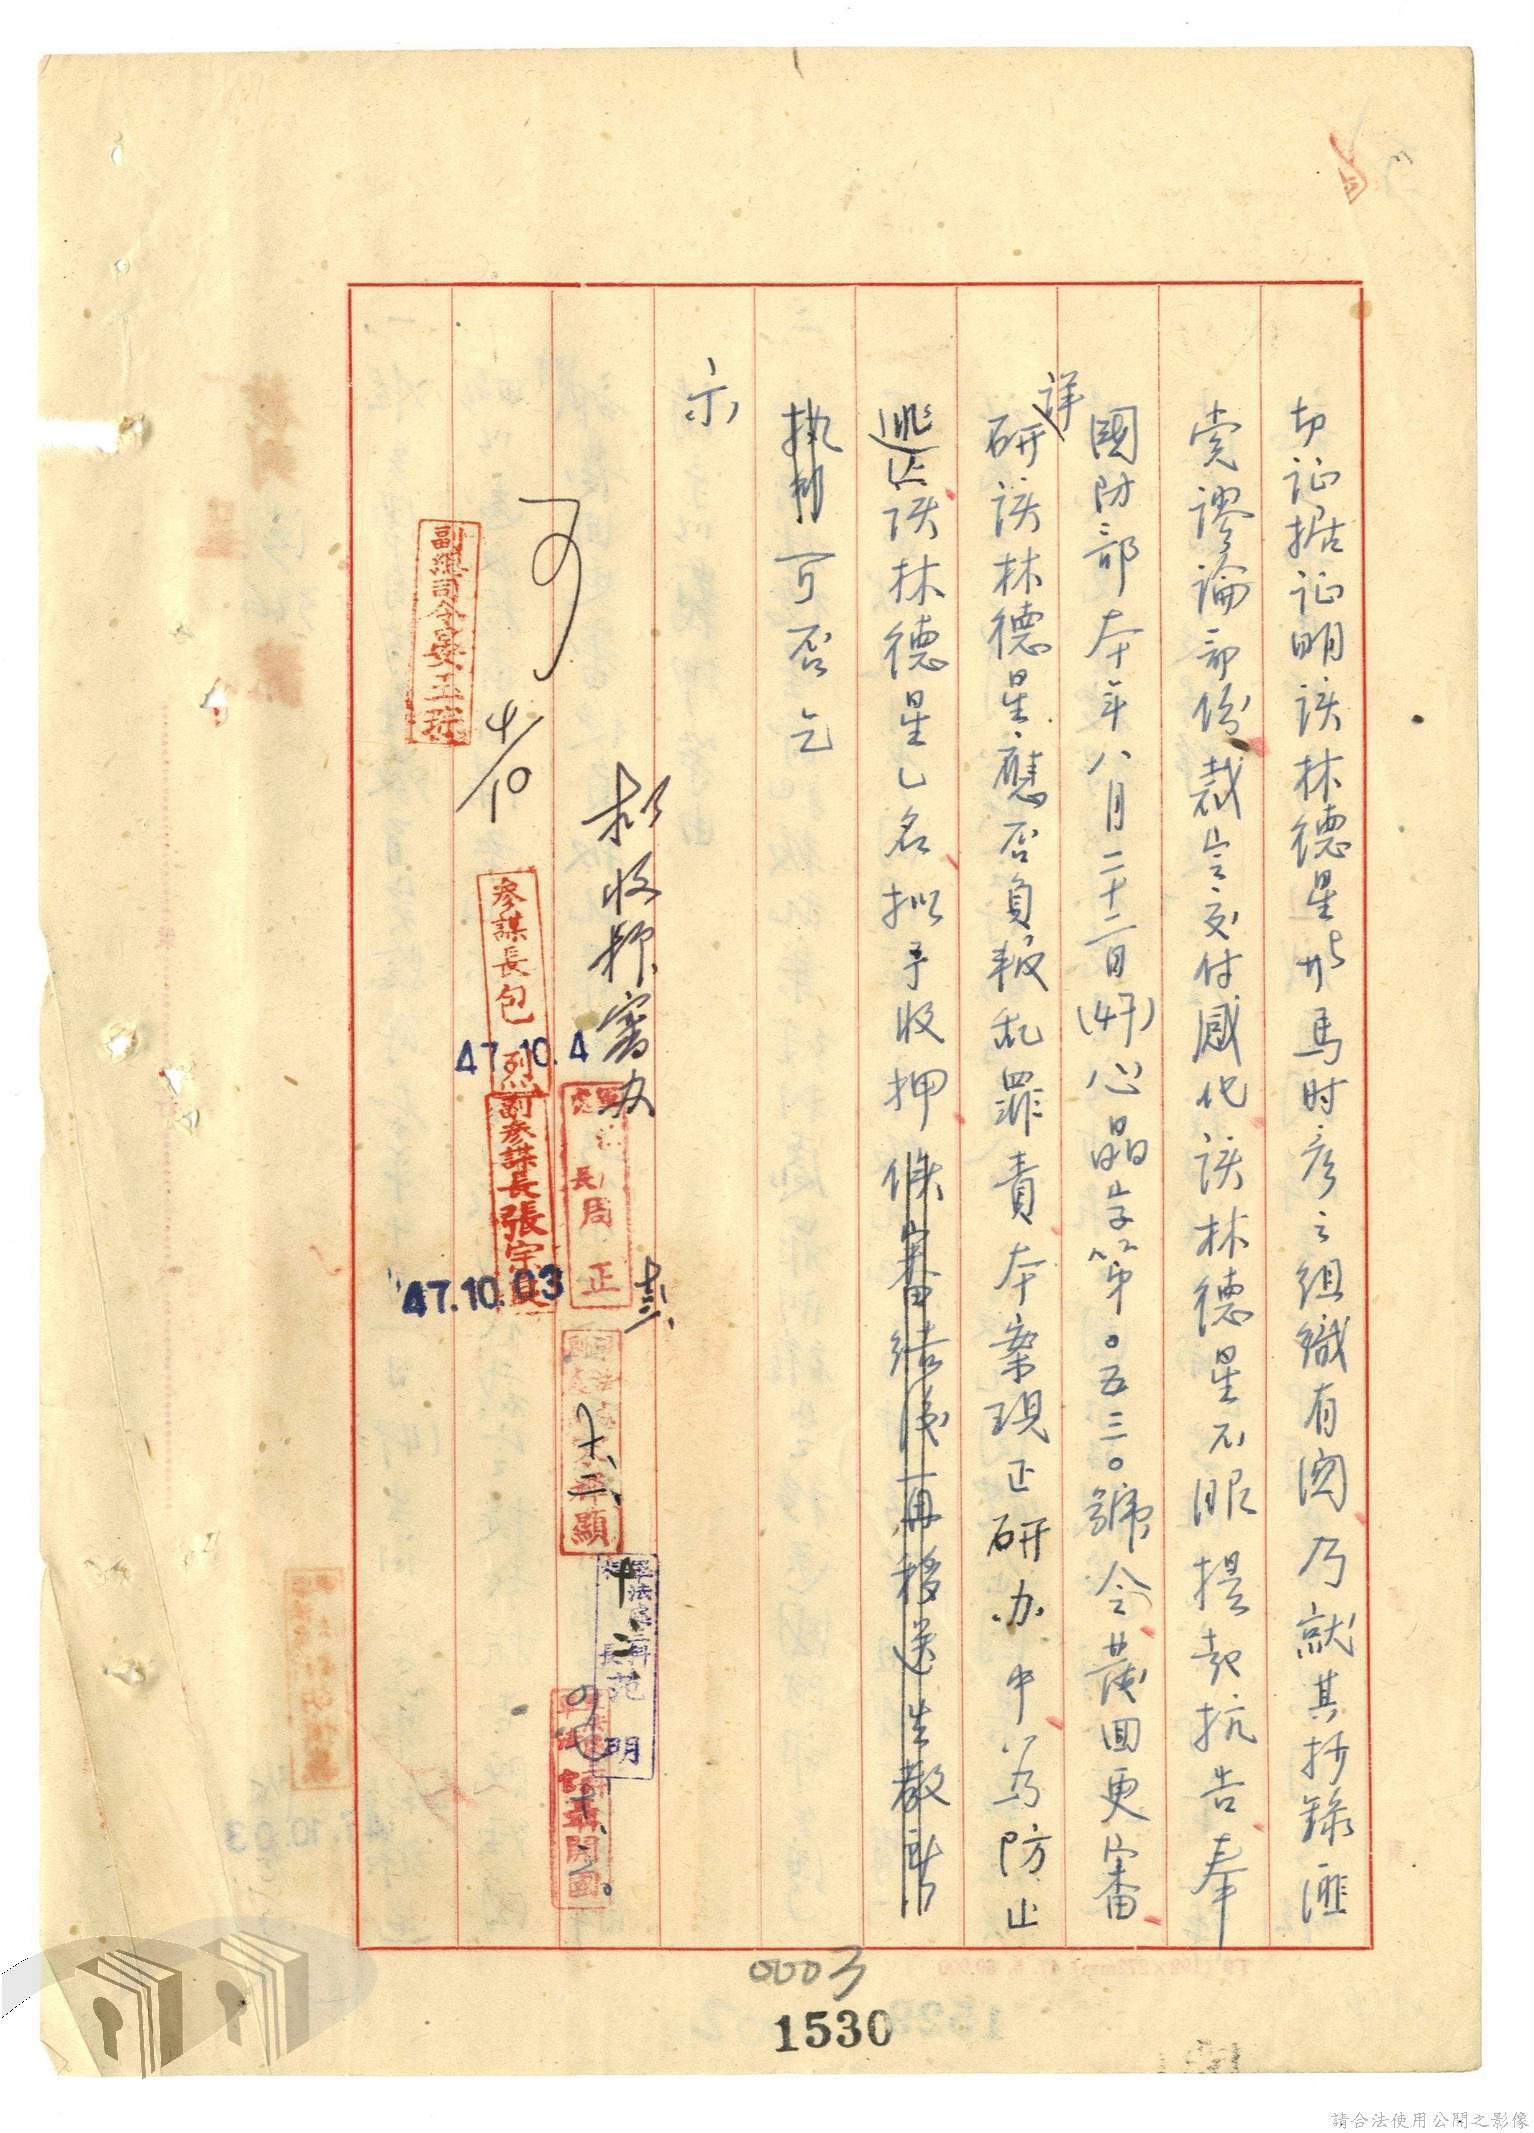 切证据证明该林德星与馬时彥之組織有関乃就其抄錄匪
党謬論部份裁定交付感化该林德星不服提起抗告奉
國防部本年八月二十二日(47)心晶字第〇五三〇號令發回更審
詳
研该林德星應否負叛乱罪責本案現正研办中為防止
逃亡该林德星乙名拟予收押候審結後再移送生教所
執行可否乞
示
可
4/10
副總司令
拟收押審办
參謀長包列
47.10.4
副參謀長張宗
47.10.03
軍法處長周正
十.二.
顯
軍法處科長范明
十.二.
0003
1530
請合法使用公開之影像